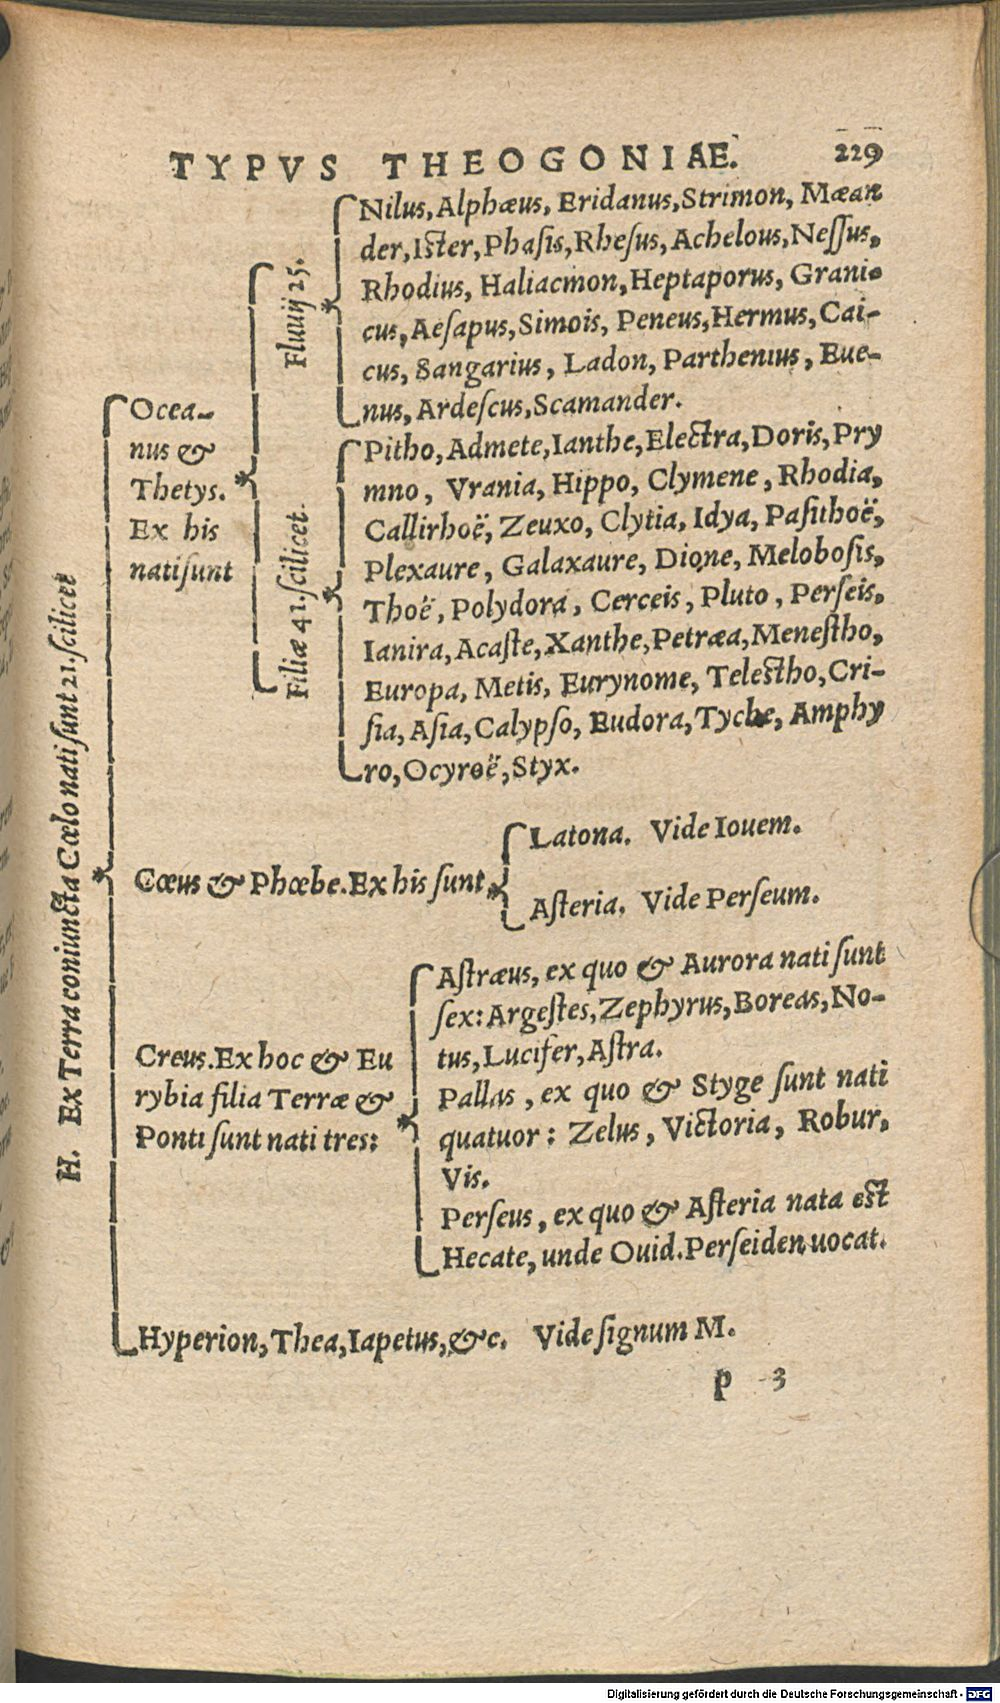 TYPVS THEOGONIAE. 229
H. Ex Terra coniuncta Cœlo nati sunt 21. scilicet
Ocea-
nus &
Thetys.
Ex his
nati sunt
Fluuij 25.
Nilus, Alphæus, Eridanus, Strimon, Mæan
der, Ister, Phasis, Rhesus, Achelous, Nessus,
Rhodius, Haliacmon, Heptaporus, Grani-
cus, Aesapus, Simois, Peneus, Hermus, Cai-
cus, Sangarius, Ladon, Parthenius, Eue-
nus, Ardescus, Scamander.
Filiæ 41. scilicet.
Pitho, Admete, Ianthe, Electra, Doris, Pry
mno, Vrania, Hippo, Clymene, Rhodia,
Callirhoë, Zeuxo, Clytia, Idya, Pasithoë,
Plexaure, Galaxaure, Dione, Melobosis,
Thoë, Polydora, Cerceis, Pluto, Perseis,
Ianira, Acaste, Xanthe, Petræa, Menestho,
Europa, Metis, Eurynome, Telestho, Cri-
sia, Asia, Calypso, Eudora, Tyche, Amphy
ro, Ocyroë, Styx.
Cœus & Phœbe. Ex his sunt
Latona. Vide Iouem.
Asteria. Vide Perseum.
Creus. Ex hoc & Eu
rybia filia Terræ &
Ponti sunt nati tres:
Astræus, ex quo & Aurora nati sunt
sex: Argestes, Zephyrus, Boreas, No-
tus, Lucifer, Astra.
Pallas, ex quo & Styge sunt nati
quatuor: Zelus, Victoria, Robur,
Vis.
Perseus, ex quo & Asteria nata est
Hecate, unde Ouid. Perseiden uocat.
Hyperion, Thea, Iapetus, &c. Vide signum M.
p 3
Digitalisierung gefördert durch die Deutsche Forschungsgemeinschaft - DFG